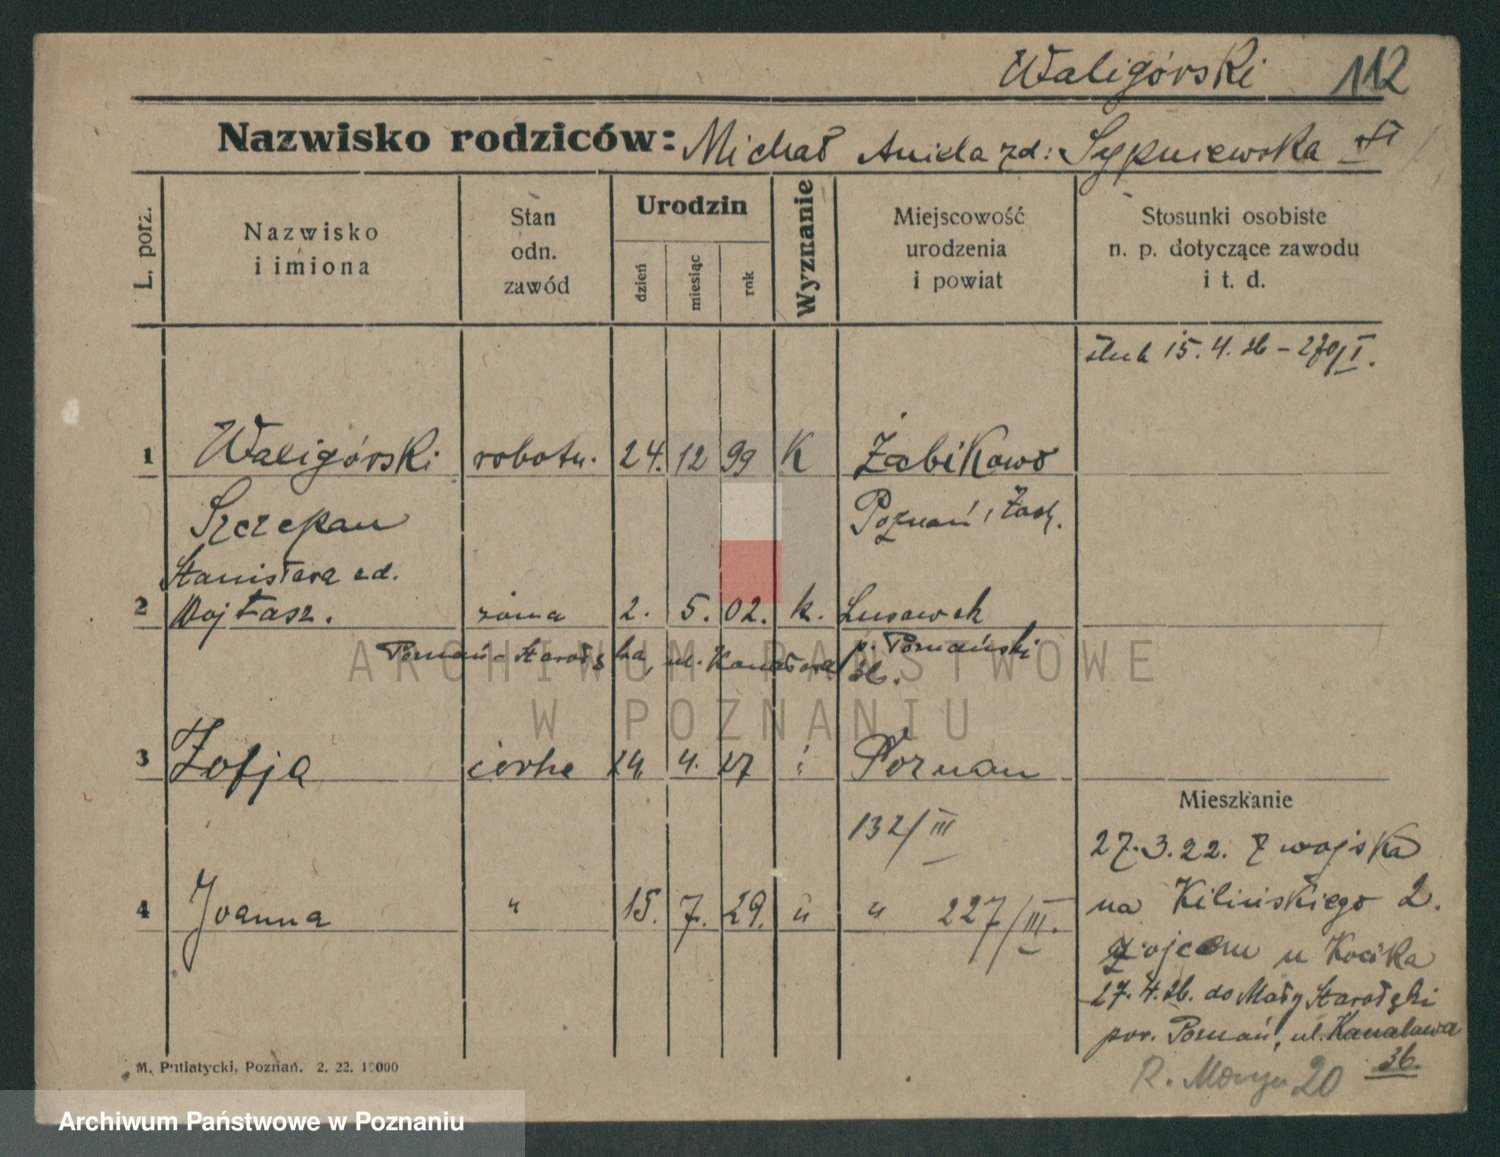 Waligórski 112
Nazwisko rodziców: Michał Aniela zd: Sypniewska
L. porz.
Nazwisko
i imiona
Stan
odn.
zawód
Urodzin
dzień
miesiąc
rok
Wyznanie
Miejscowość
urodzenia
i powiat
Stosunki osobiste
n. p. dotyczące zawodu
i t. d.
ślub 15. 4. 26 – 270/I.
1 Waligórski robotn. 24. 12 99 K Żabikowo
Szczepan Poznań, Zach.
Stanisława zd.
2 Wojtasz. żona 2. 5. 02. k. Lusówek
Poznań - Starołęka, ul. Kanałowa p. Poznański
36.
3 Zofja córka 24. 4. 27 " Poznań
132/III
4 Joanna " 15. 7. 29. " " 227/III.
Mieszkanie
27. 3. 22. z wojska
na Kilińskiego 2.
z ojcem u Kocika
27. 4. 26. do Mały Starołęki
pow. Poznań, ul. Kanałowa
36.
20
M. Putiatycki, Poznań. 2. 22. 10000
ARCHIWUM PAŃSTWOWE
W POZNANIU
Archiwum Państwowe w Poznaniu